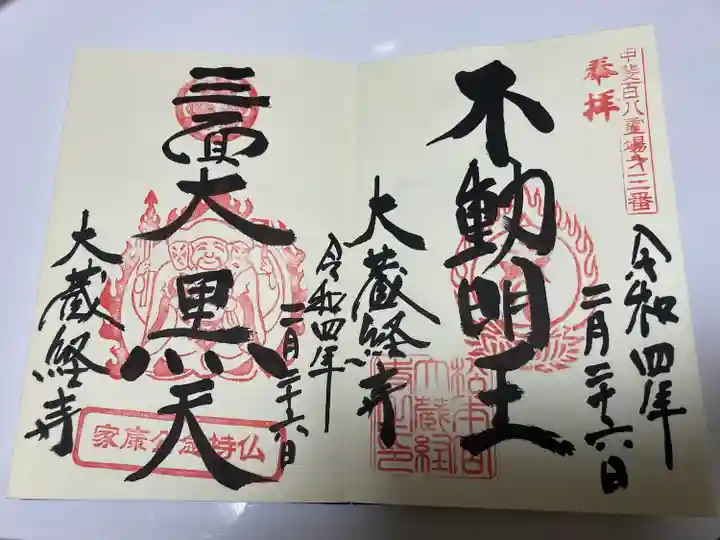 甲斐百八霊場第三番
奉拝
令和四年
二月二十六日
不動明王
大蔵経寺
令和四年
二月二十六日
三面大黒天
大蔵経寺
家康公念持仏